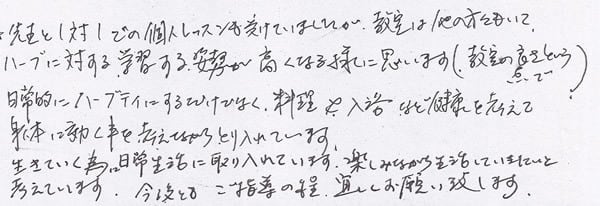 ・先生と1対1での個人レッスンを受けていましたが、教室は他の方もいて、
ハーブに対する学習する姿勢が高くなる様に思います(教室の良さという点で)
日常的にハーブティにするだけでなく、料理や入浴など健康を考えて
身体に効く事を考えながらとり入れています。
生きていく為、日常生活に取り入れています。楽しみながら生活していきたいと
考えています。今後ともご指導の程、宜しくお願い致します。